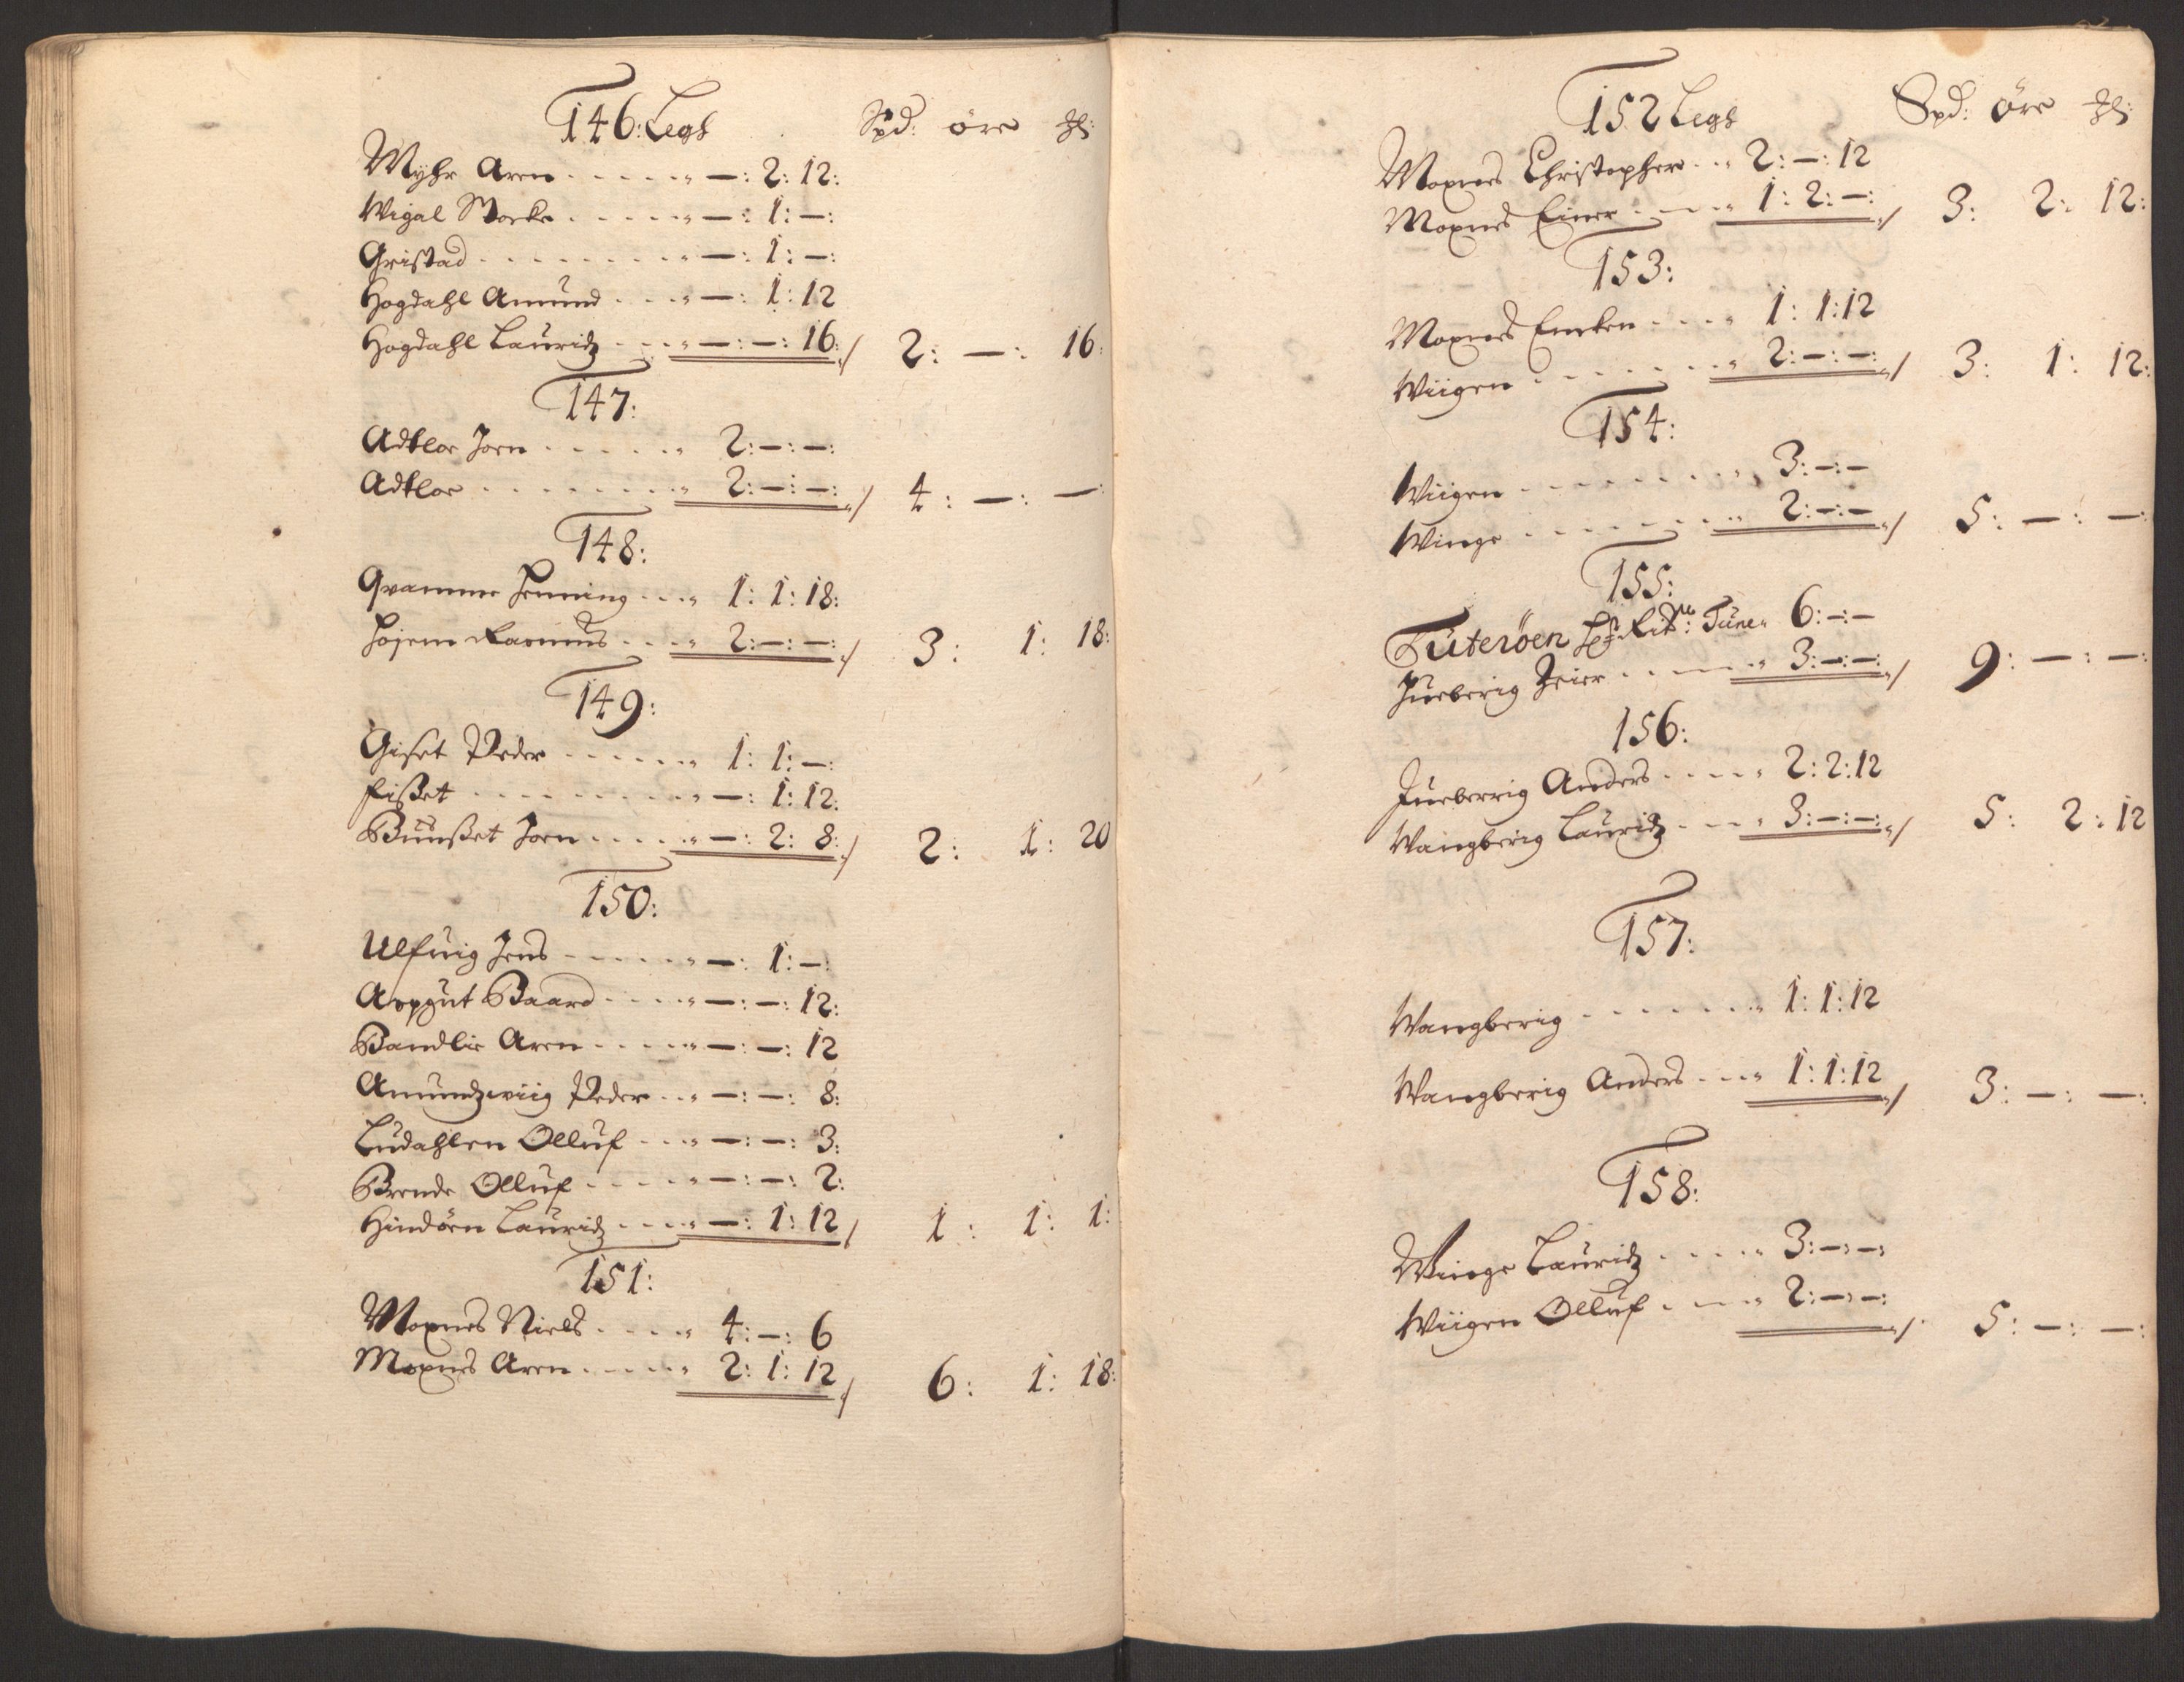 146: Legs Spd: öre
Myhr Aren . . . . . . „ —: 2: 12:
Wigal . . . . . „ —: 1: —:
Gristad . . . . . . . . . „ —: 1: —:
Hogdahl Amund . . . . „ —: 1: 12
Hogdahl Lauridz . . . „ —: —: 16:/ 2: —: 16:
147:
Adtloe Joen . . . . . . „ 2: —: —:
Adtloe . . . . . . . . „ 2: —: —:/ 4: —: —:
148:
Qvamme Henning . . . „ 1: 1: 18:
Hojem Rasmus . . . „ 2: —: —:/ 3: 1: 18:
149:
Giset Peder . . . . . . „ 1: 1: —:
Fisset . . . . . . . . . „ —: 1: 12:
Buusset Joen . . . . . „ —: 2: 8:/ 2: 1: 20
150:
Ulfuig Jens . . . . . . „ —: 1: —:
Aopgut Baard . . . . . „ —: —: 12:
Bandlie Aren . . . . . „ —: —: 12
Amundzwiig Peder . . „ —: —: 8:
Ludahlen Olluf . . . „ —: —: 3:
Brende Olluf . . . . . „ —: —: 2:
Hindöen Lauridz . . . . „ —: 1: 12/ 1: 1: 1:
151:
Moxnes Niels . . . . „ 4: —: 6
Moxnes Aren . . . . . „ 2: 1: 12/ 6: 1: 18:
152 Legs Spd: öre
Moxnes Christopher . . „ 2: —: 12
Moxnes Einer . . . . „ 1: 2: —:/ 3: 2: 12:
153:
Moxnes Encken . . . . „ 1: 1: 12
Wiigen . . . . . . . „ 2: —: —:/ 3: 1: 12:
154:
Wiigen . . . . . . . . „ 3: —: —
Winge . . . . . . . . „ 2: —: —/ 5: —: —:
155:
Tuteröen Tune „ 6: —: —
Jueberig . . . . . „ 3: —: —:/ 9: —: —:
156:
Jueberrig Anders . . . . „ 2: 2: 12
Wangberig Lauridz . . . „ 3: —: —:/ 5: 2: 12
157:
Wangberig . . . . . . . „ 1: 1: 12
Wangberig Anders . . . „ 1: 1: 12/ 3: —: —:
158:
Winge Lauridz . . . . . „ 3: —: —:
Wiigen Olluf . . . . „ 2: —: —:/ 5: —: —: